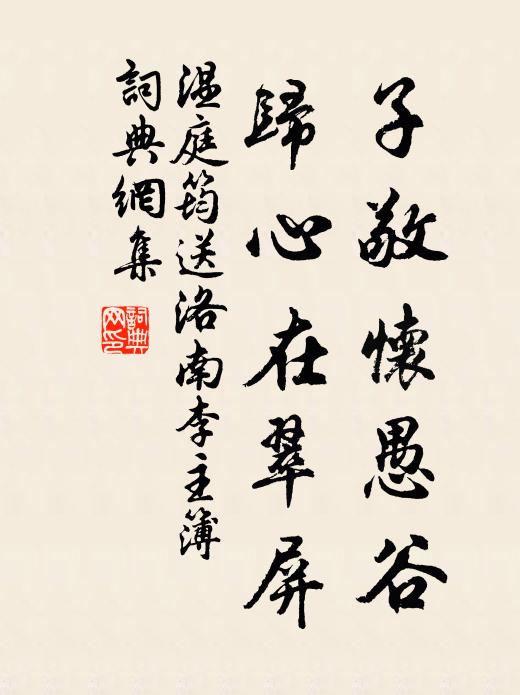 子敬懷愚谷
歸心在翠屏
温庭筠送洛南李主簿
詞典網集
詞典网印